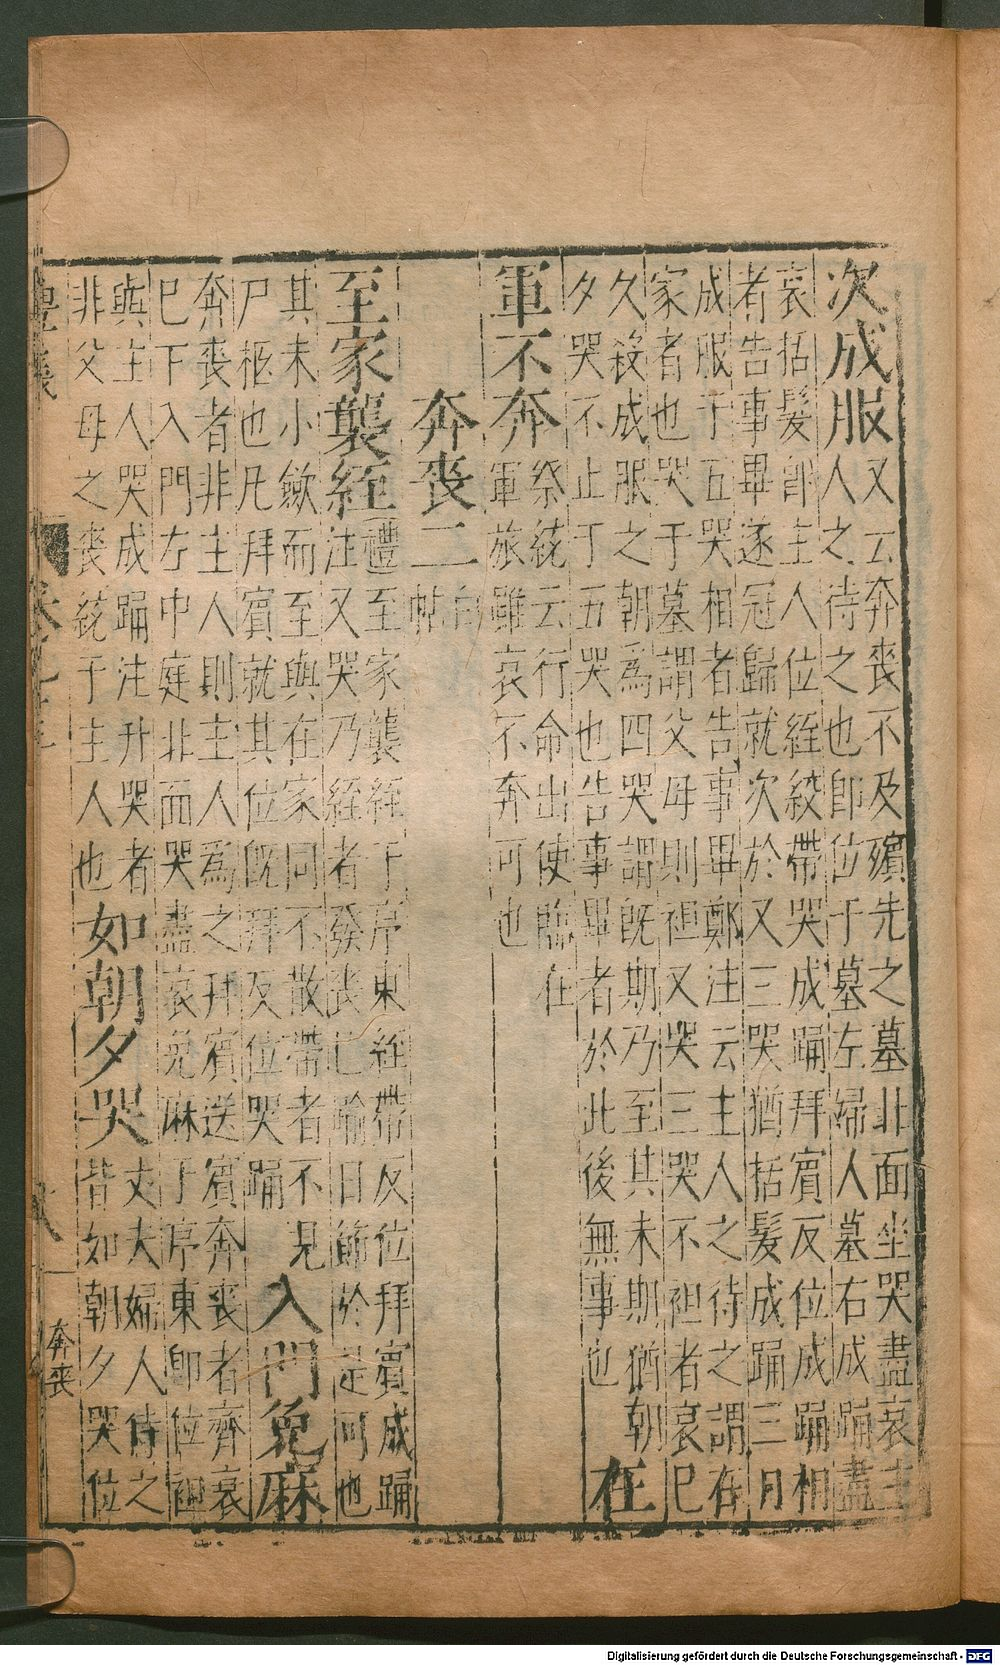 次成服又云奔喪不及殯先之墓北面坐哭盡哀主
人之待之也卽位于墓左婦人墓右成踊盡
哀括髮卽主人位絰絞帶哭成踊拜賔反位成踊相
者告事畢遂冠歸就次於又三哭猶括髮成踊三日
成服于五哭相者告事畢鄭注云主人之待之謂在
家者也哭于墓謂父母則袒又哭三哭不袒者哀已
久殺成服之朝爲四哭謂旣期乃至其未期猶朝
夕哭不止于五哭也告事畢者於此後無事也在
軍不奔祭統云行命出使臨在
軍旅雖哀不奔可也
奔喪二白
帖
至家襲絰禮至家襲絰于序東絰帶反位拜賔成踊
注又哭乃絰者發喪已踰日節於是可也
其未小歛而至與在家同不散帶者不見
尸柩也凡拜賔就其位旣拜反位哭踊入門免麻
奔喪者非主人則主人爲之拜賔送賔奔喪者齊衰
已下入門左中庭北面哭盡哀免麻于序東卽位袒
與主人哭成踊注升哭者
非父母之喪統于主人也如朝夕哭丈夫婦人待之
皆如朝夕哭位
奔喪
Digitalisierung gefördert durch die Deutsche Forschungsgemeinschaft - DFG